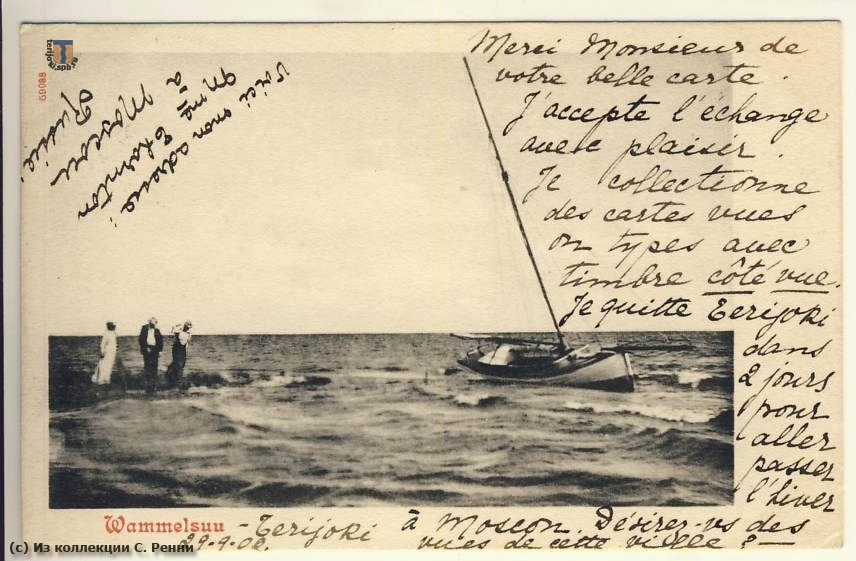 Merci Monsieur de
votre belle carte.
J'accepte l'échange
avec plaisir.
Je collectionne
des cartes vues
ou types avec
timbre côté vue.
Je quitte Terijoki
dans
2 jours
pour
aller
passer
l'hiver
à Moscou. Désirez-vs des
vues de cette ville? —
Voici mon adresse:
Mme
à Moscou
Russie
59088
terijoki.spb.ru
Wammelsuu - Terijoki
(c) Из коллекции С. Ренни